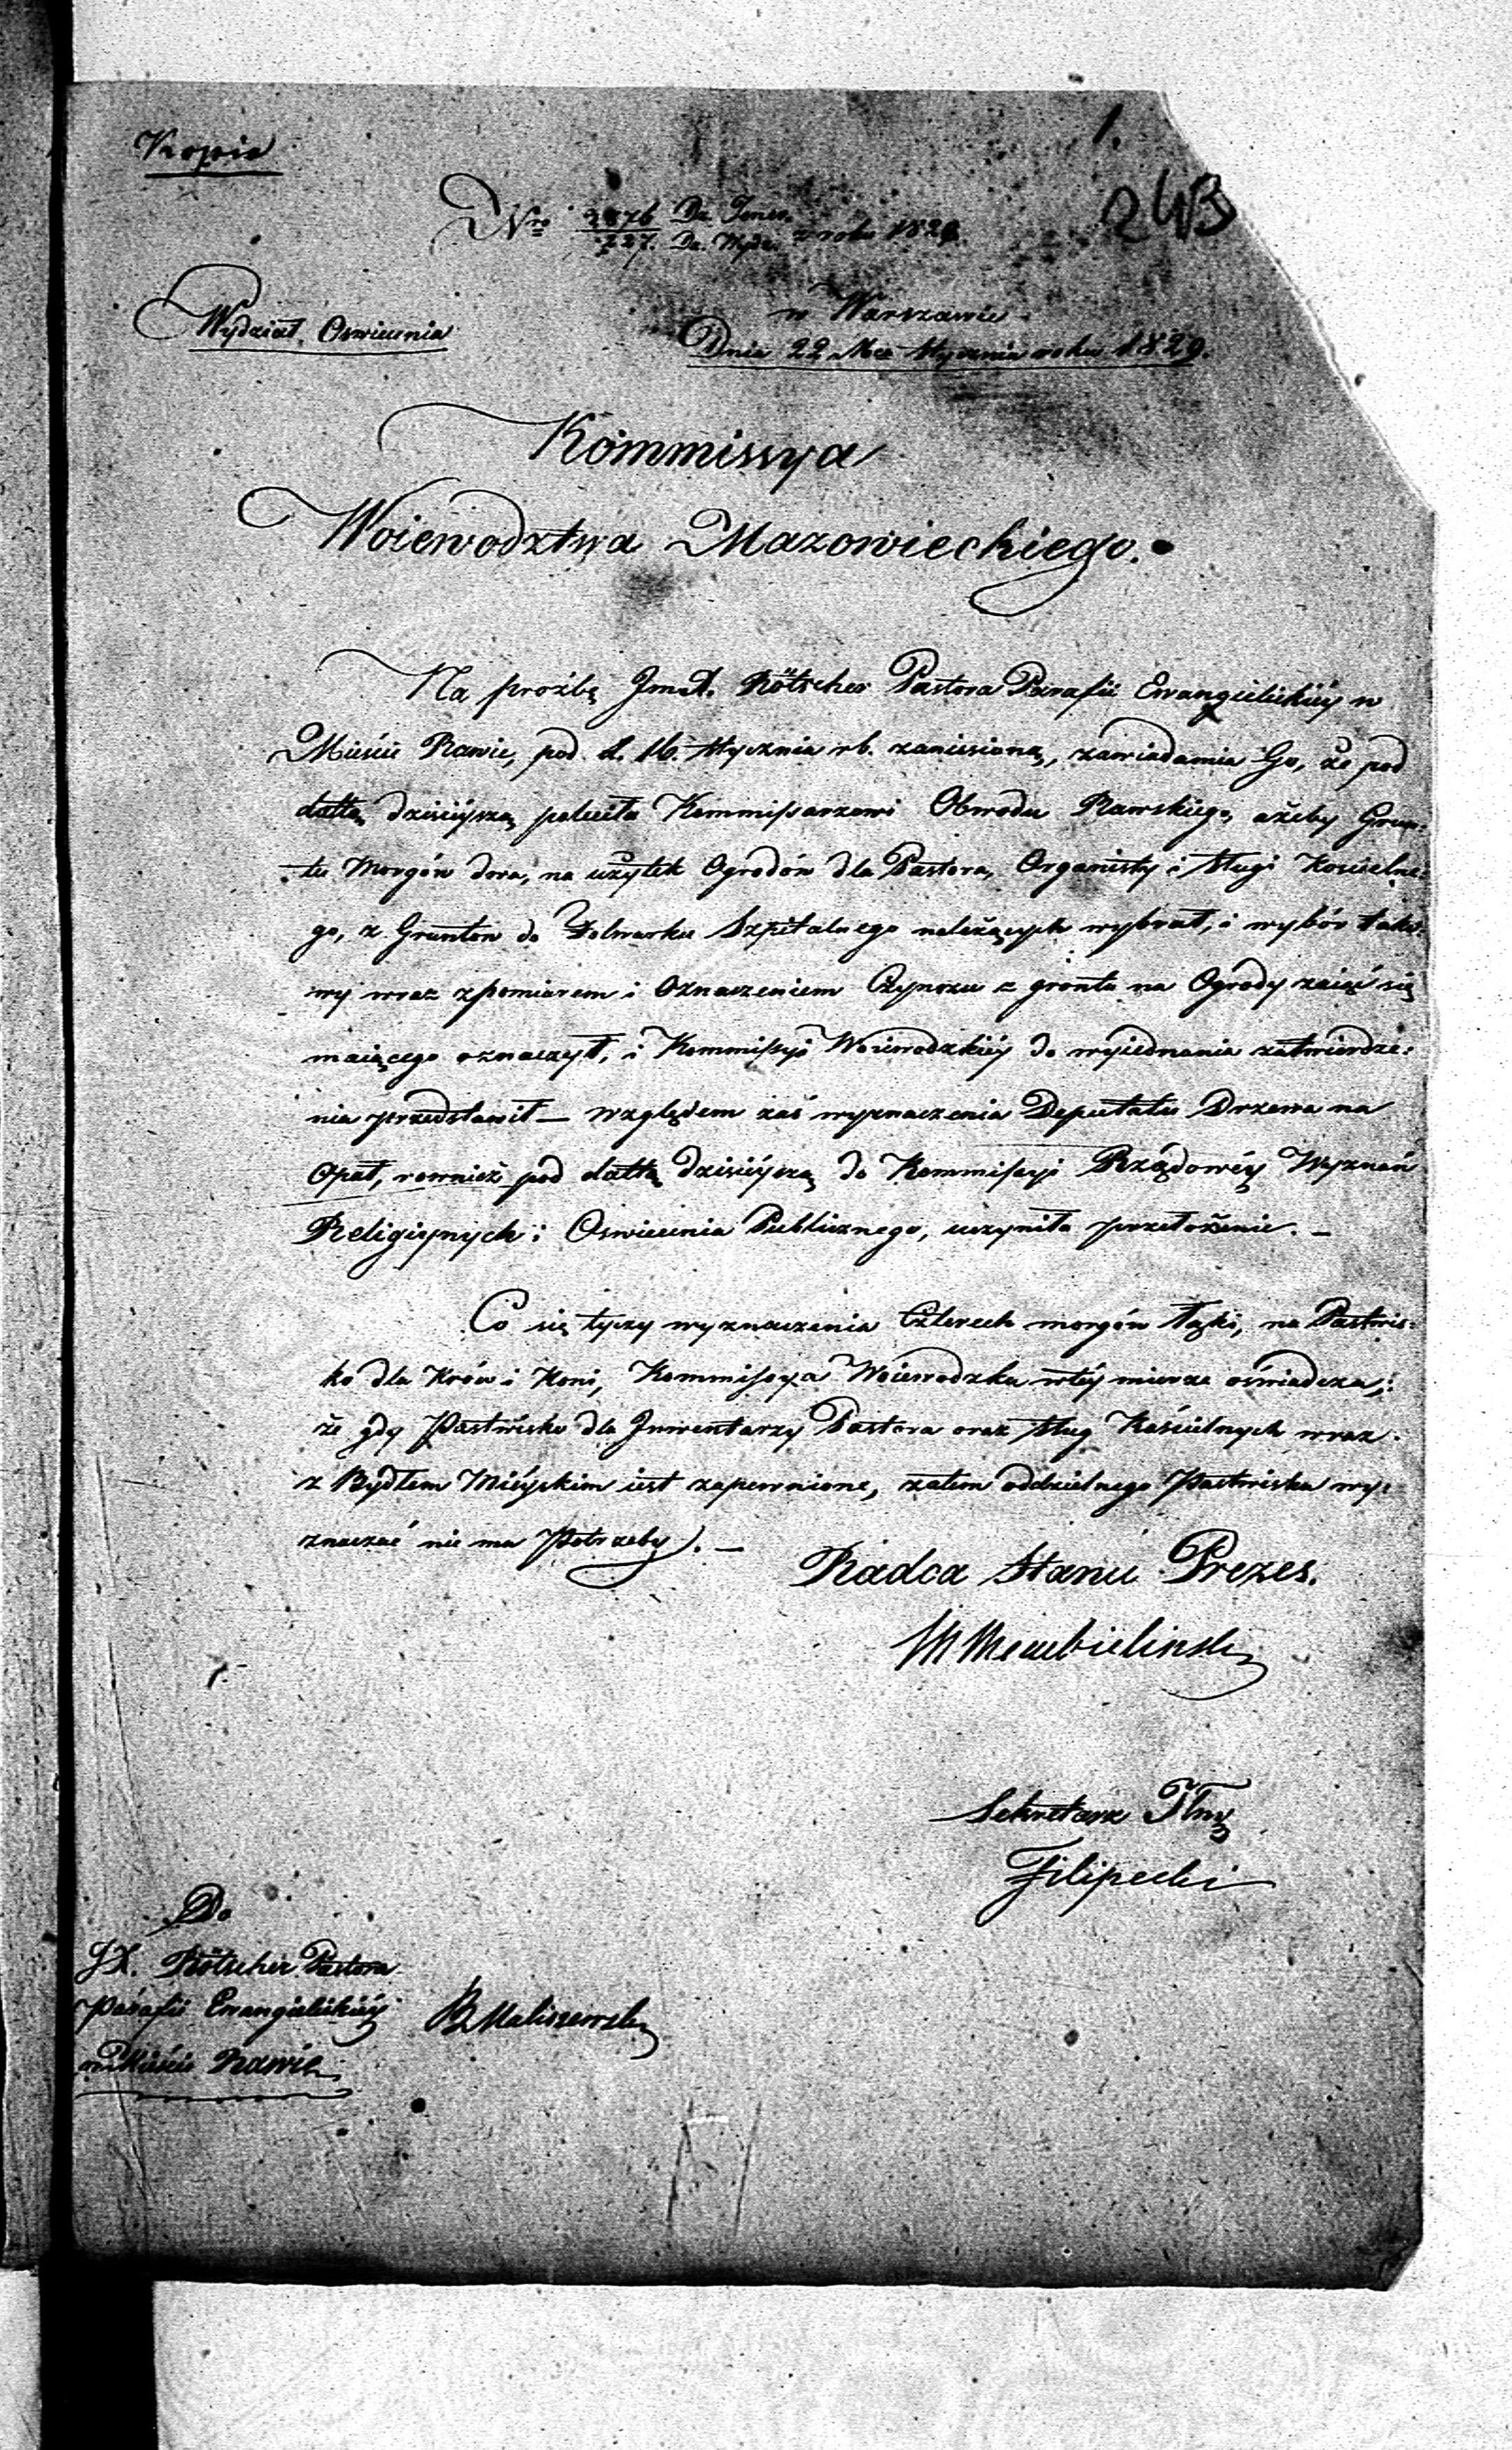 Kopia
1.
243
Nro 2876 Dz. Gener.
227. Dz. Wydz. z roku 1829.
Wydział Oswiecenia
w Warszawie
Dnia 22 Mca Stycznia roku 1829.
Kommissya
Woiewodztwa Mazowieckiego.
Na proźbę Rötscher Pastora Parafii Ewangielickiéy w
Mieście Rawie, pod d. 16. Stycznia rb. zaniesioną, zawiadamia Go, że pod
dattą dzisiéyszą poleciła Kommissarzowi Obwodu Rawskiego, ażeby Grun:
tu Morgów dwa, na użytek Ogrodów dla Pastora, Organisty i Sługi Koscielne:
go, z Gruntow do Folwarku Szpitalnego należących wybrał, i wybór tako:
wy wraz z pomiarem i Oznaczeniem Czynszu z grontu na Ogrody zaiąć się
maiącego oznaczył, i Kommissyi Woiewodzkiéy do wyiednania zatwierdze:
nia przedstawił — względem zaś wyznaczenia Deputatu Drzewa na
Opał, rownież pod dattą dzisiéyszą do Kommissyi Rządowéy Wyznań
Religiynych i Oswiecenia Publicznego, uczyniła przełożenie. —
Co się tyczy wyznaczenia Czterech morgów łąki, na Pastwis:
ko dla Krów i Koni, Kommissya Woiewodzka w téy mierze oświadcza;
że gdy Pastwisko dla Inwentarzy Pastora oraz Sług Kościelnych wraz
z Bydłem Miéyskim iest zapewnione, zatem oddzielnego Pastwiska wy:
znaczać nie ma Potrzeby. —
Radca Stanu Prezes.
Sekretarz
Filipecki
Do
JX. Rötscher Pastora
Parafii Ewangielickiéy
w Mieście Rawie
Maliszewski